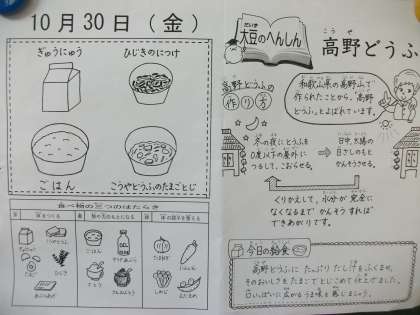 10月30日（金）
ぎゅうにゅう
ひじきのにつけ
ごはん
こうやとうふのたまごとじ
食べ物の三つのはたらき
ぎゅうにゅう
ひじき
ごはん
さとう
にんじん
だいず
大豆のへんしん
こうや
高野どうふ
高野どうふの
作り方
和歌山県の高野山で
作られたことから、「高野
どうふ」とよばれています。
冬の夜にとうふを
0度以下の屋外に
つるして、こおらせる。
日中、太陽の
日ざしのもと
かんそうさせる。
くりかえして、水分が完全に
なくなるまでかんそうすれば
できあがりです。
今日の給食
高野どうふにたっぷりだし汁をふくませ、
そのおいしさをたまごでとじこめて仕上げました。
口いっぱいに広がるうま味を感じましょう。